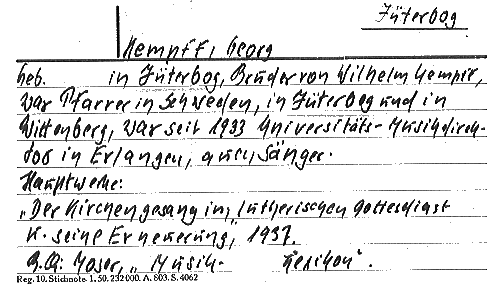 Jüterbog
Kempff, Georg
geb. in Jüterbog, Bruder von Wilhelm Kempff,
war Pfarrer in Schweden, in Jüterbog und in
Wittenberg, war seit 1933 Universitäts-Musikdirek-
tor in Erlangen, auch Sänger.
Hauptwerke:
„Der Kirchengesang im lutherischen Gottesdienst
u. seine Erneuerung", 1937.
Moser, „Musik-Lexikon".
Reg. 10. Stichnote. 1. 50. 232 000. A. 803. S. 4062